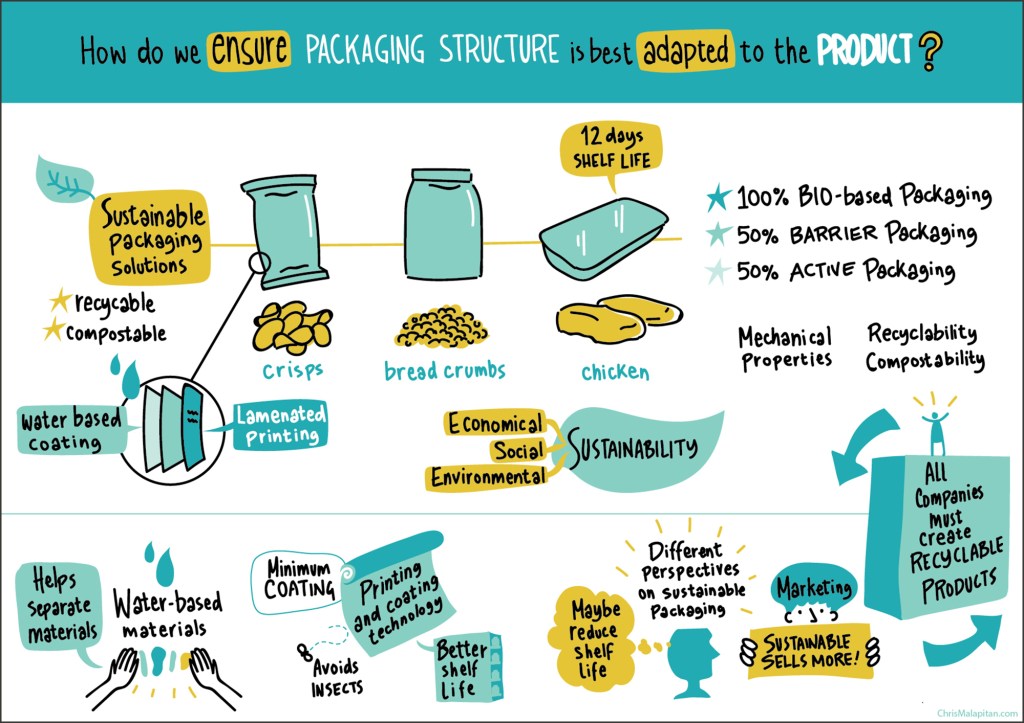 How do we ensure PACKAGING STRUCTURE is best adapted to the PRODUCT?
12 days
SHELF LIFE
Sustainable
packaging
solutions
recycable
compostable
crisps
bread crumbs
chicken
100% BIO-based Packaging
50% BARRIER Packaging
50% ACTIVE Packaging
Mechanical
Properties
Recyclability
Compostability
Water based
coating
Lamenated
printing
Economical
Social
Environmental
SUSTAINABILITY
All
Companies
must
create
RECYCLABLE
PRODUCTS
Helps
separate
materials
Water-based
materials
Minimum
COATING
Printing
and coating
technology
Avoids
INSECTS
Better
shelf
Life
Maybe
reduce
shelf
life
Different
Perspectives
on sustainable
Packaging
Marketing
SUSTAINABLE
SELLS MORE!
ChrisMalapitan.com